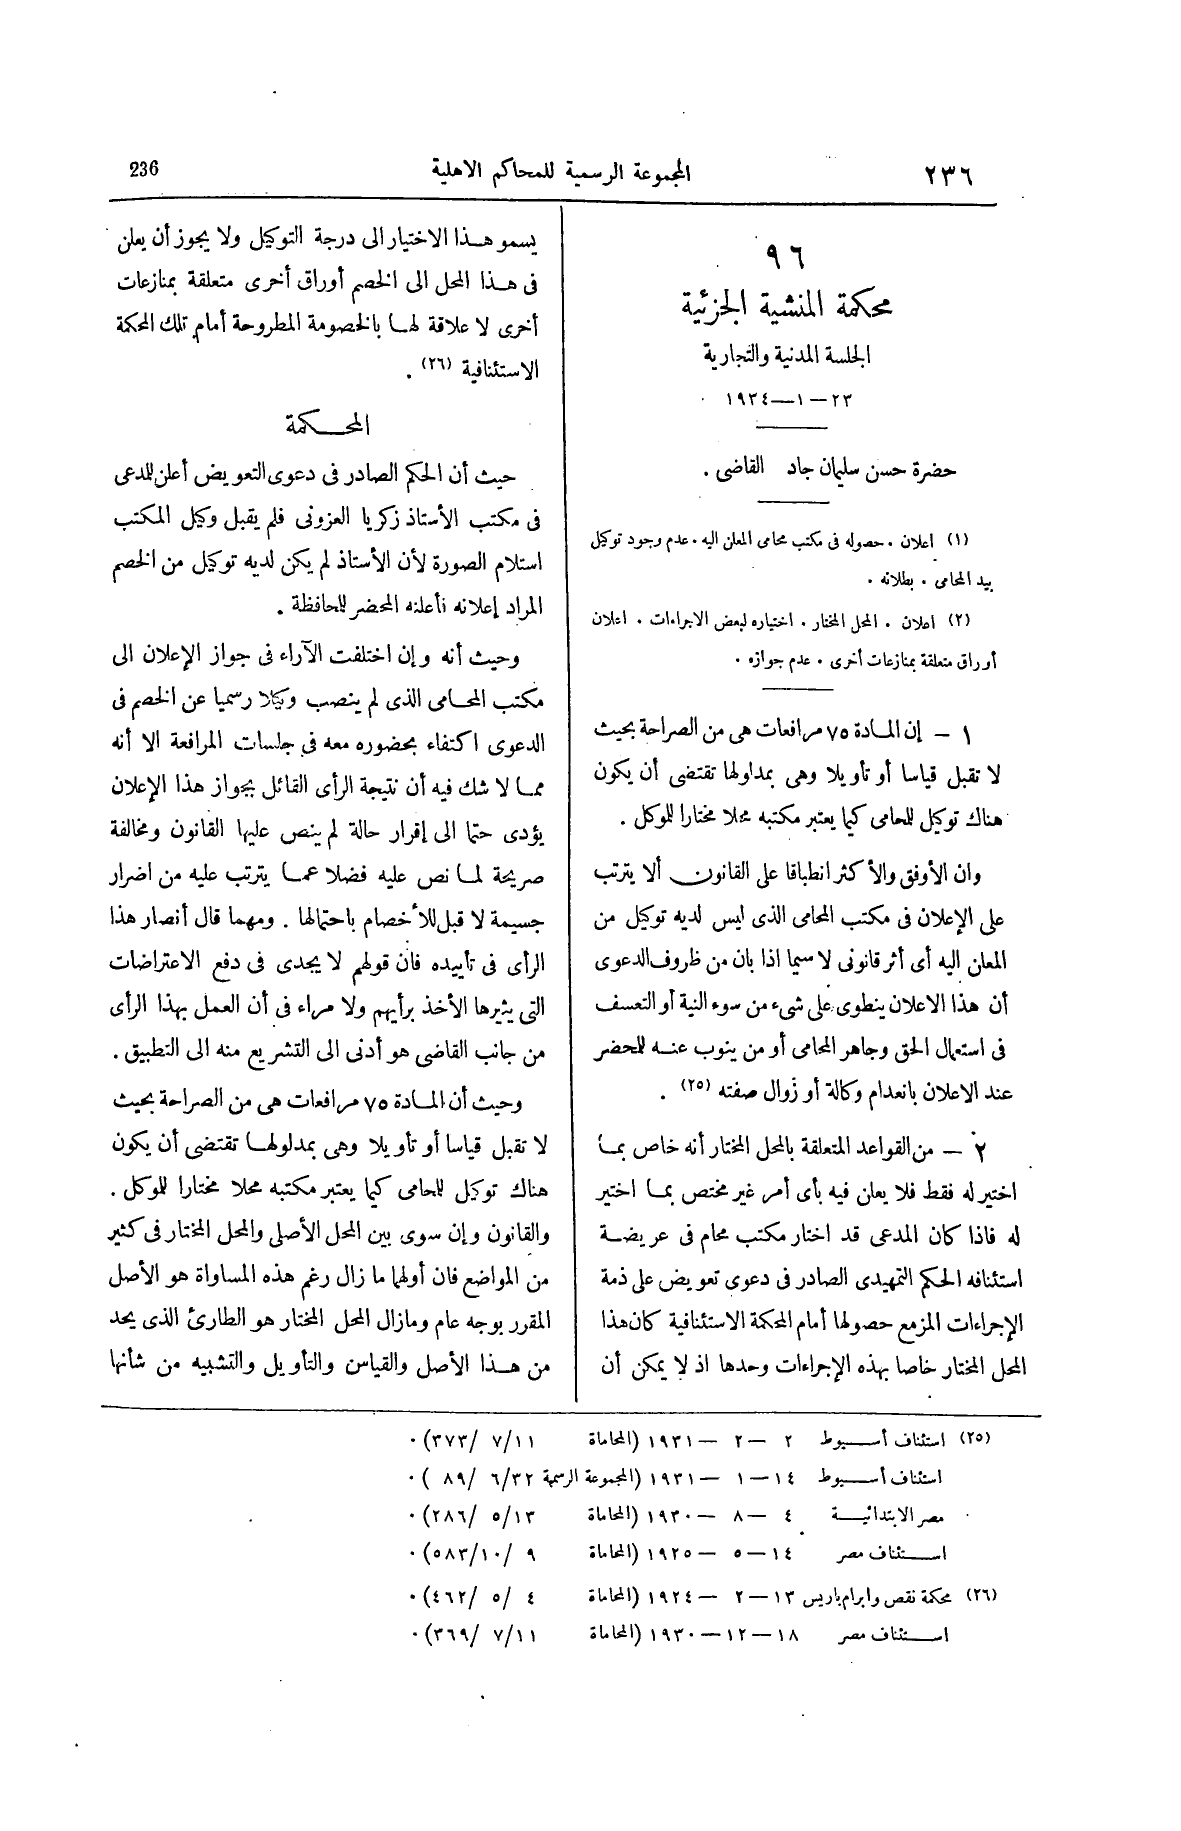 ٢٣٦
المجموعة الرسمية للمحاكم الاهلية
236
٩٦
محكمة المنشية الجزئية
الجلسة المدنية والتجارية
٢٣ — ١ — ١٩٣٤
حضرة حسن سليمان جاد القاضى .
(١) اعلان . حصوله فى مكتب محامى المعلن اليه . عدم وجود توكيل
بيد المحامى . بطلانه .
(٢) اعلان . المحل المختار . اختياره لبعض الاجراءات . اعلان
أوراق متعلقة بمنازعات أخرى . عدم جوازه .
١ — إن المادة ٧٥ مرافعات هى من الصراحة بحيث
لا تقبل قياسا أو تأويلا وهى بمداولها تقتضى أن يكون
هناك توكيل للحامى كيما يعتبر مكتبه محلا مختارا للوكل .
وان الأوفق والأكثر انطباقا على القانون ألا يترتب
على الإعلان فى مكتب المحامى الذى ليس لديه توكيل من
المعلن اليه أى أثر قانونى لا سيما اذا بان من ظروف الدعوى
أن هذا الاعلان ينطوى على شىء من سوء النية أو التعسف
فى استعمال الحق وجاهر المحامى أو من ينوب عنه للحضر
عند الاعلان بانعدام وكالة أو زوال صفته (٢٥) .
٢ — من القواعد المتعلقة بالمحل المختار أنه خاص بما
اختير له فقط فلا يعلن فيه بأى أمر غير مختص بما اختير
له فاذا كان المدعى قد اختار مكتب محام فى عريضة
استئنافه الحكم التمهيدى الصادر فى دعوى تعويض على ذمة
الإجراءات المزمع حصولها أمام المحكمة الاستئنافية كان هذا
المحل المختار خاصا بهذه الإجراءات وحدها اذ لا يمكن أن
يسمو هذا الاختيار الى درجة التوكيل ولا يجوز أن يعلن
فى هذا المحل الى الخصم أوراق أخرى متعلقة بمنازعات
أخرى لا علاقة لها بالخصومة المطروحة أمام تلك المحكمة
الاستئنافية (٢٦) .
المحكمة
حيث أن الحكم الصادر فى دعوى التعويض أعلن للمدعى
فى مكتب الأستاذ زكريا العزونى فلم يقبل وكيل المكتب
استلام الصورة لأن الأستاذ لم يكن لديه توكيل من الخصم
المراد إعلانه فأعلنه المحضر للحافظة .
وحيث أنه وإن اختلفت الآراء فى جواز الإعلان الى
مكتب المحامى الذى لم ينصب وكيلا رسميا عن الخصم فى
الدعوى اكتفاء بحضوره معه فى جلسات المرافعة الا أنه
مما لا شك فيه أن نتيجة الرأى القائل بجواز هذا الإعلان
يؤدى حتما الى إقرار حالة لم ينص عليها القانون ومخالفة
صريحة لما نص عليه فضلا عما يترتب عليه من اضرار
جسيمة لا قبل للأخصام باحتمالها . ومهما قال أنصار هذا
الرأى فى تأييده فان قولهم لا يجدى فى دفع الاعتراضات
التى يثيرها الأخذ برأيهم ولا مراء فى أن العمل بهذا الرأى
من جانب القاضى هو أدنى الى التشريع منه الى التطبيق .
وحيث أن المادة ٧٥ مرافعات هى من الصراحة بحيث
لا تقبل قياسا أو تأويلا وهى بمدلولها تقتضى أن يكون
هناك توكيل للحامى كيما يعتبر مكتبه محلا مختارا للوكل .
والقانون وإن سوى بين المحل الأصلى والمحل المختار فى كثير
من المواضع فان أولهما ما زال رغم هذه المساواة هو الأصل
المقرر بوجه عام ومازال المحل المختار هو الطارئ الذى يحد
من هذا الأصل والقياس والتأويل والتشبيه من شأنها
(٢٥) استئناف أسيوط ٢ — ٢ — ١٩٣١ (المحاماة ٧/١١ /٣٧٣) .
استئناف أسيوط ١٤ — ١ — ١٩٣١ (المجموعة الرسمية ٦/٣٢ /٨٩ ) .
مصر الابتدائية ٤ — ٨ — ١٩٣٠ (المحاماة ٥/١٣ /٢٨٦) .
استئناف مصر ١٤ — ٥ — ١٩٢٥ (المحاماة ٩ /١٠/٥٨٣) .
(٢٦) محكمة نقص وابرام باريس ١٣ — ٢ — ١٩٢٤ (المحاماة ٤ /٥ /٤٦٢) .
استئناف مصر ١٨ — ١٢ — ١٩٣٠ (المحاماة ٧/١١ /٣٦٩) .